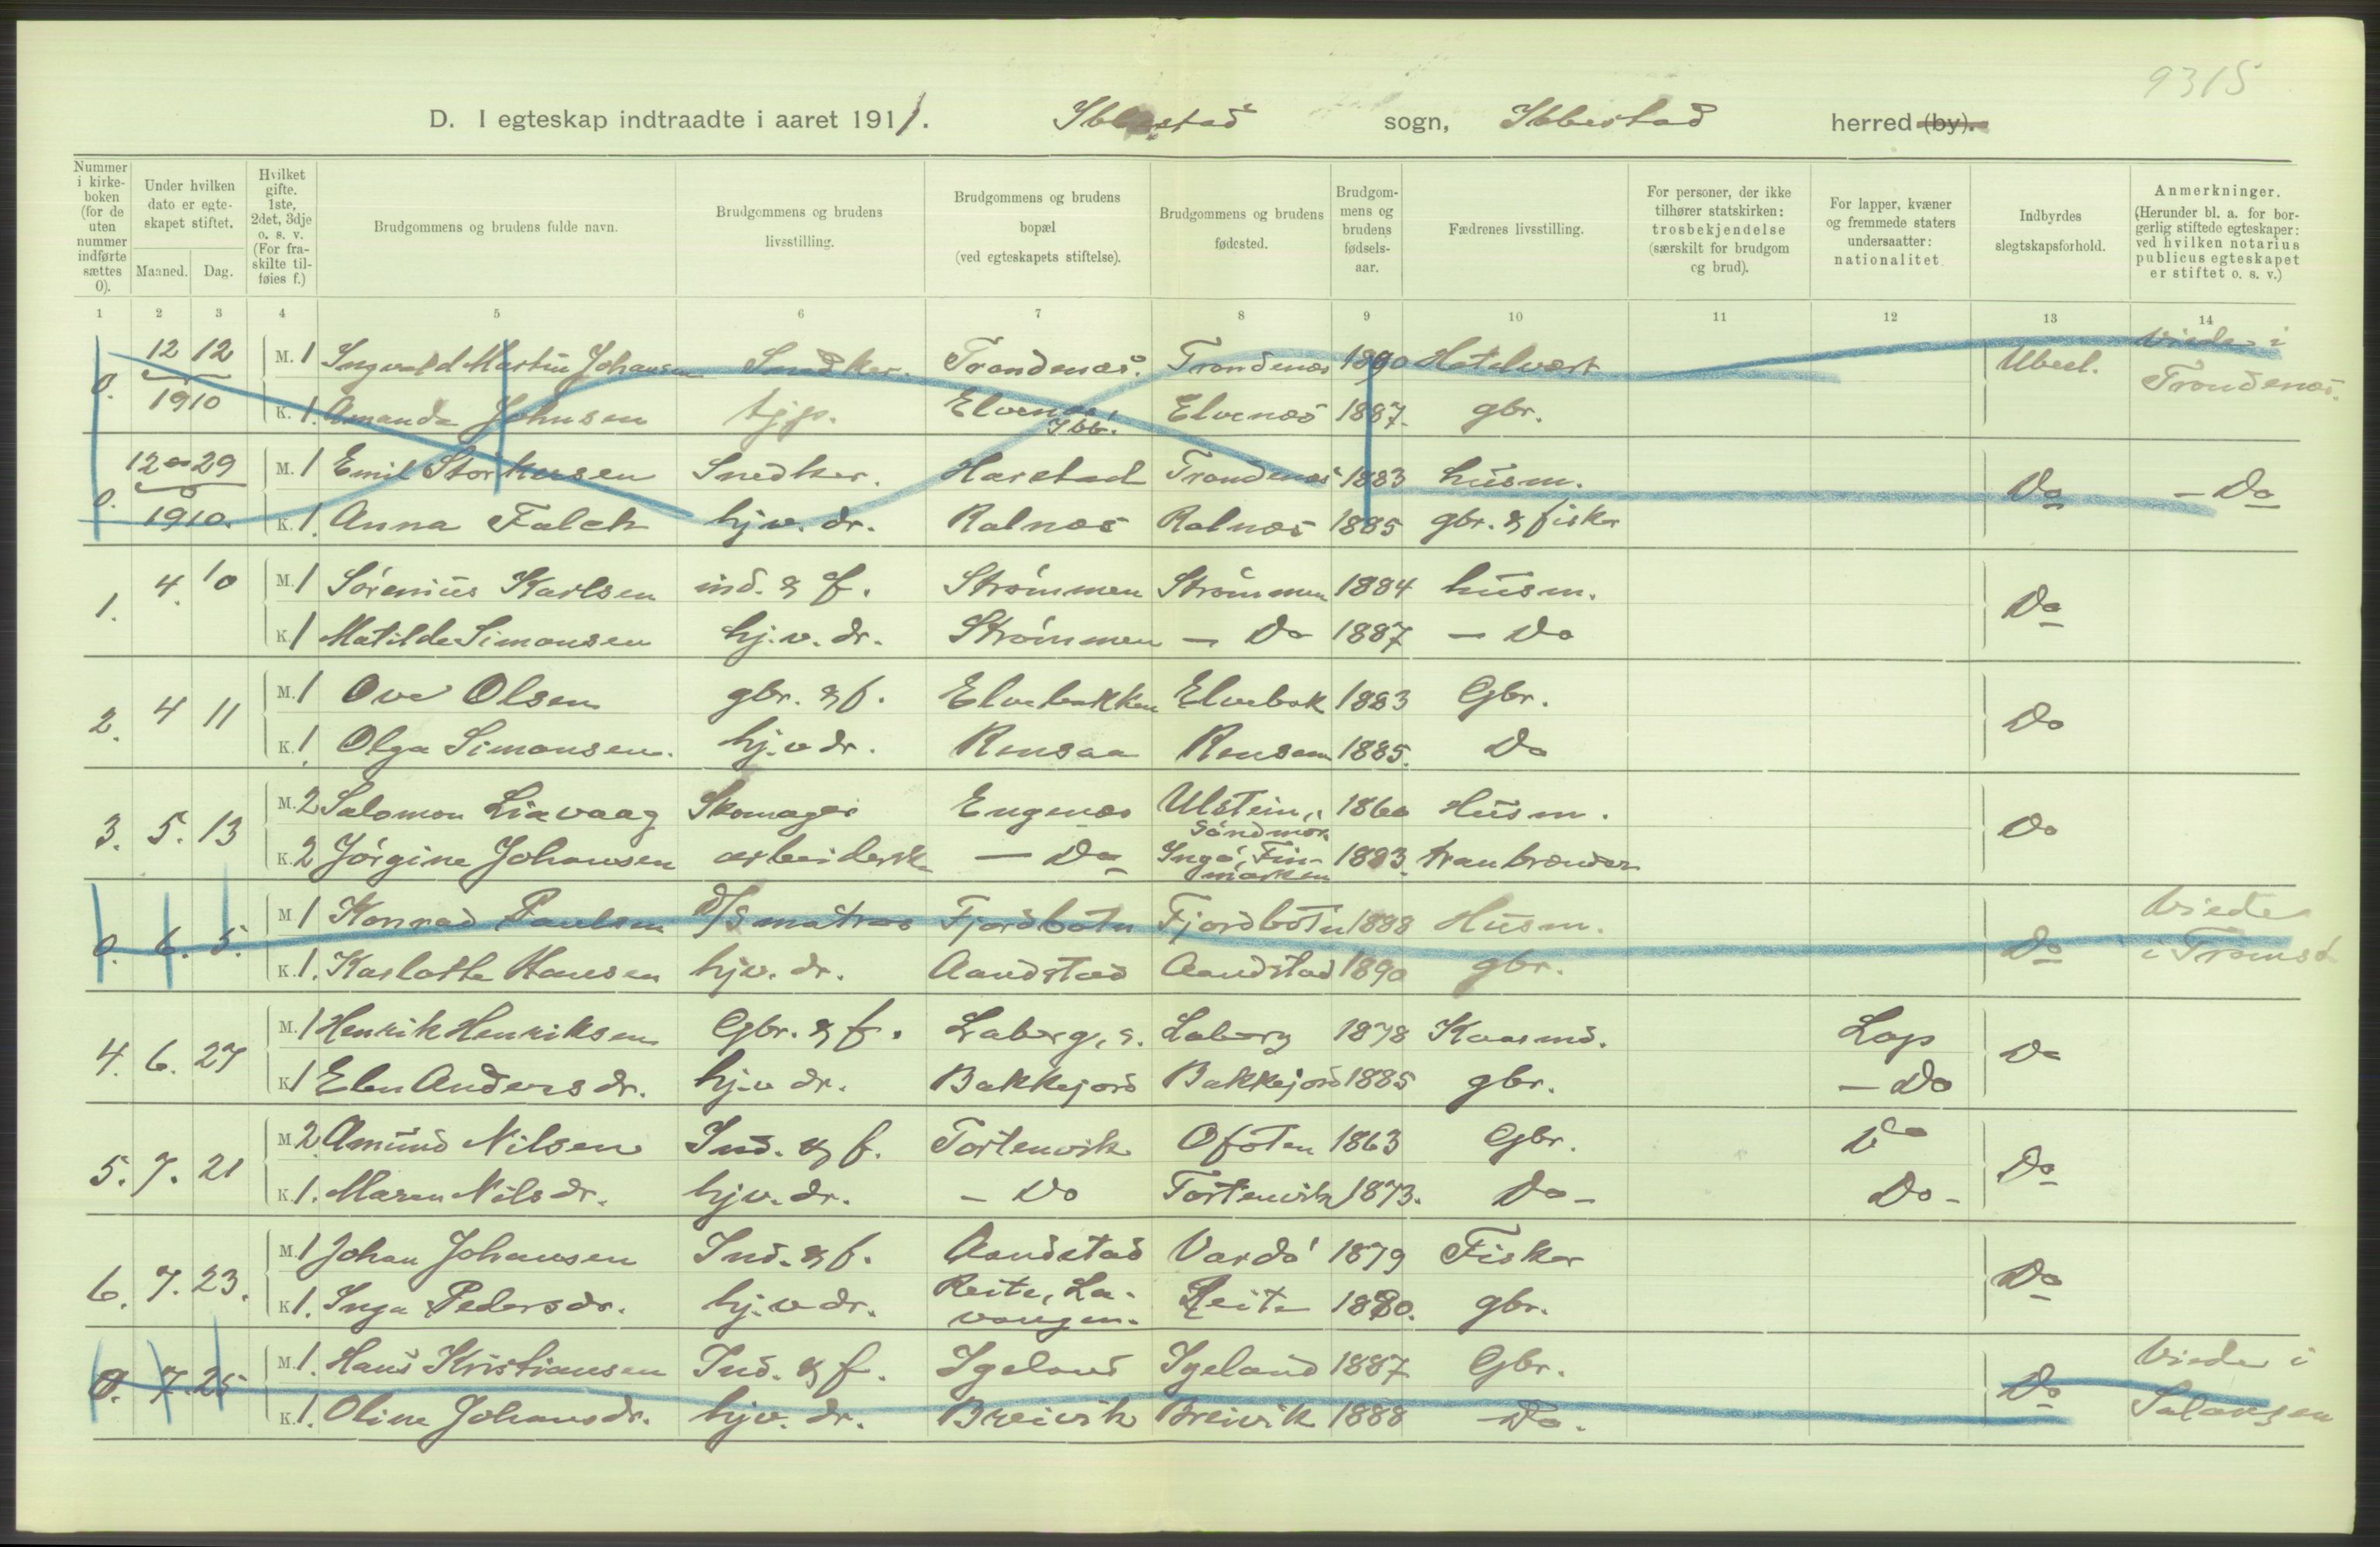 9315
D. I egteskap indtraadte i aaret 1911. Ibbestad sogn, Ibbestad herred (by).
Nummer i kirke-boken (for de uten nummer indførte sættes 0).
Under hvilken dato er egte-skapet stiftet.
Maaned. Dag.
Hvilket gifte. 1ste, 2det, 3dje o. s. v. (For fra-skilte til-føies f.)
Brudgommens og brudens fulde navn.
Brudgommens og brudens livsstilling.
Brudgommens og brudens bopæl (ved egteskapets stiftelse).
Brudgommens og brudens fødested.
Brudgom-mens og brudens fødsels-aar.
Fædrenes livsstilling.
For personer, der ikke tilhører statskirken: trosbekjendelse (særskilt for brudgom og brud).
For lapper, kvæner og fremmede staters undersaatter: nationalitet
Indbyrdes slegtskapsforhold.
Anmerkninger. (Herunder bl. a. for bor-gerlig stiftede egteskaper: ved hvilken notarius publicus egteskapet er stiftet o. s. v.)
1 2 3 4 5 6 7 8 9 10 11 12 13 14
0. 12 12 1910 M. 1 Ingvald Martin Johansen Snedker. Trondenæs. Trondenæs 1890 Hotelvært Ubesl. Viede i Trondenæs.
K. 1. Amanda Johnsen tjp. Elvenæs, Ibb. Elvenæs 1887. gbr.
0. 12 29 1910. M. 1 Emil Storhusen Snedker. Harstad Trondenæs 1883 husm. Do – Do
K. 1. Anna Falch hj.v. dr. Rolnæs Rolnæs 1885 gbr. & fisker
1. 4. 10 M. 1 Sórenius Karlsen ind. & f. Strómmen Strómmen 1884 husm. Do
K. 1 Matilde Simonsen hj.v. dr. Strómmen – Do 1887 – Do
2. 4 11 M. 1 Ove Olsen gbr. & f. Elvebakken Elvebak 1883 Gbr. Do
K. 1. Olga Simonsen. hj.v dr. Rensaa Rensaa 1885. Do
3. 5. 13 M. 2 Salomon Liavaag Skomager Engenæs Ulstein, Sóndmór 1860 Husm. Do
K. 2 Jórgine Johansen arbeidersk — Do Ingó, Fin-marken 1883. tranbrænder
0. 6. 5. M 1 Konrad Paulsen d/s matros Fjordbotn Fjordbotn 1888 Husm. Do Viede i Tromsó
K. 1. Karlotte Hansen hj.v. dr. Aandstad Aandstad 1890 gbr.
4. 6. 27 M. 1 Henrik Henriksen Gbr. & f. Laberg, s. Laberg 1878 Lap Do
K 1 Elen Andersdr. hj.v dr. Bakkejord Bakkejord 1885 gbr. – Do
5. 7. 21 M 2. Amund Nilsen Ind. & f. Tortenvik Ofoten 1863 Gbr. Do Do
K. 1. Maren Nilsdr. hj.v. dr. – Do Tortenvik 1873. Do – Do –
6. 7. 23. M. 1 Johan Johansen Ind. & f. Aandstad Vardó 1879 Fisker Do
K 1. Inga Pedersdr. hj.v dr. Reite, La-vangen. Reite 1880. gbr.
0. 7. 25 M. 1. Hans Kristiansen Ind. & f. Igeland Igeland 1887 Gbr. Do Viede i Salangen
K. 1. Oline Johansdr. hj.v. dr. Breivik Breivik 1888 Do.